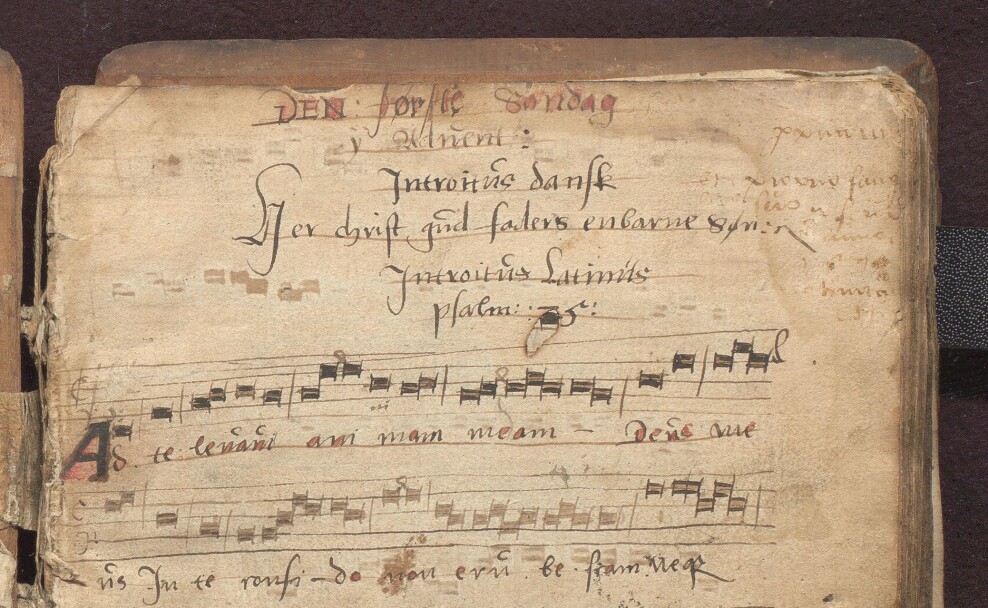 DEN: første Søndag
y Aduent:
Introitus dansk
Her christ gud faders enbarne søn:
Introitus Latinus
psalm: 25:
Ad te leuaui ani mam meam – Deus me
us In te confi – do non eru be scam Neq